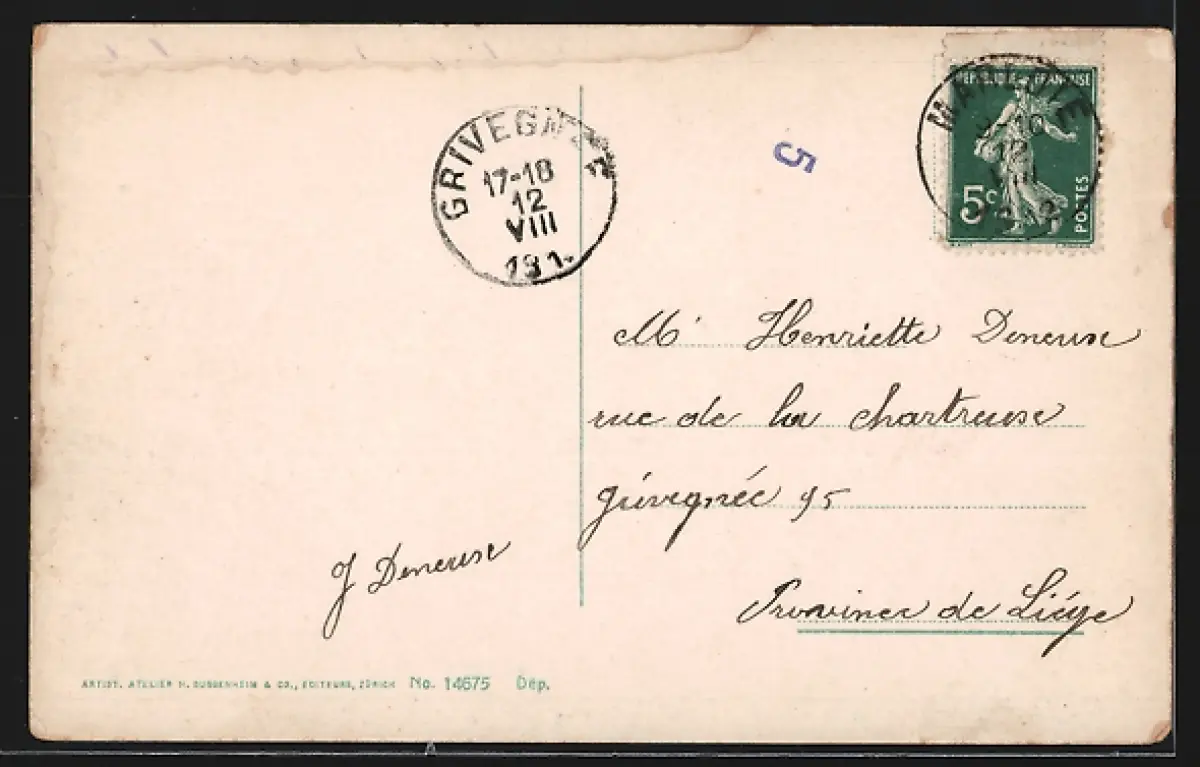 GRIVEGNÉE
17-18
12
VIII
191
5
RÉPUBLIQUE FRANÇAISE
12
VIII
5c
POSTES
Mr Henriette Deneuse
rue de la chartreuse
grivegnée 95
Province de Liége
J Deneuse
ARTIST. ATELIER H. GUGGENHEIM & CO., EDITEURS, ZÜRICH No. 14675 Dép.